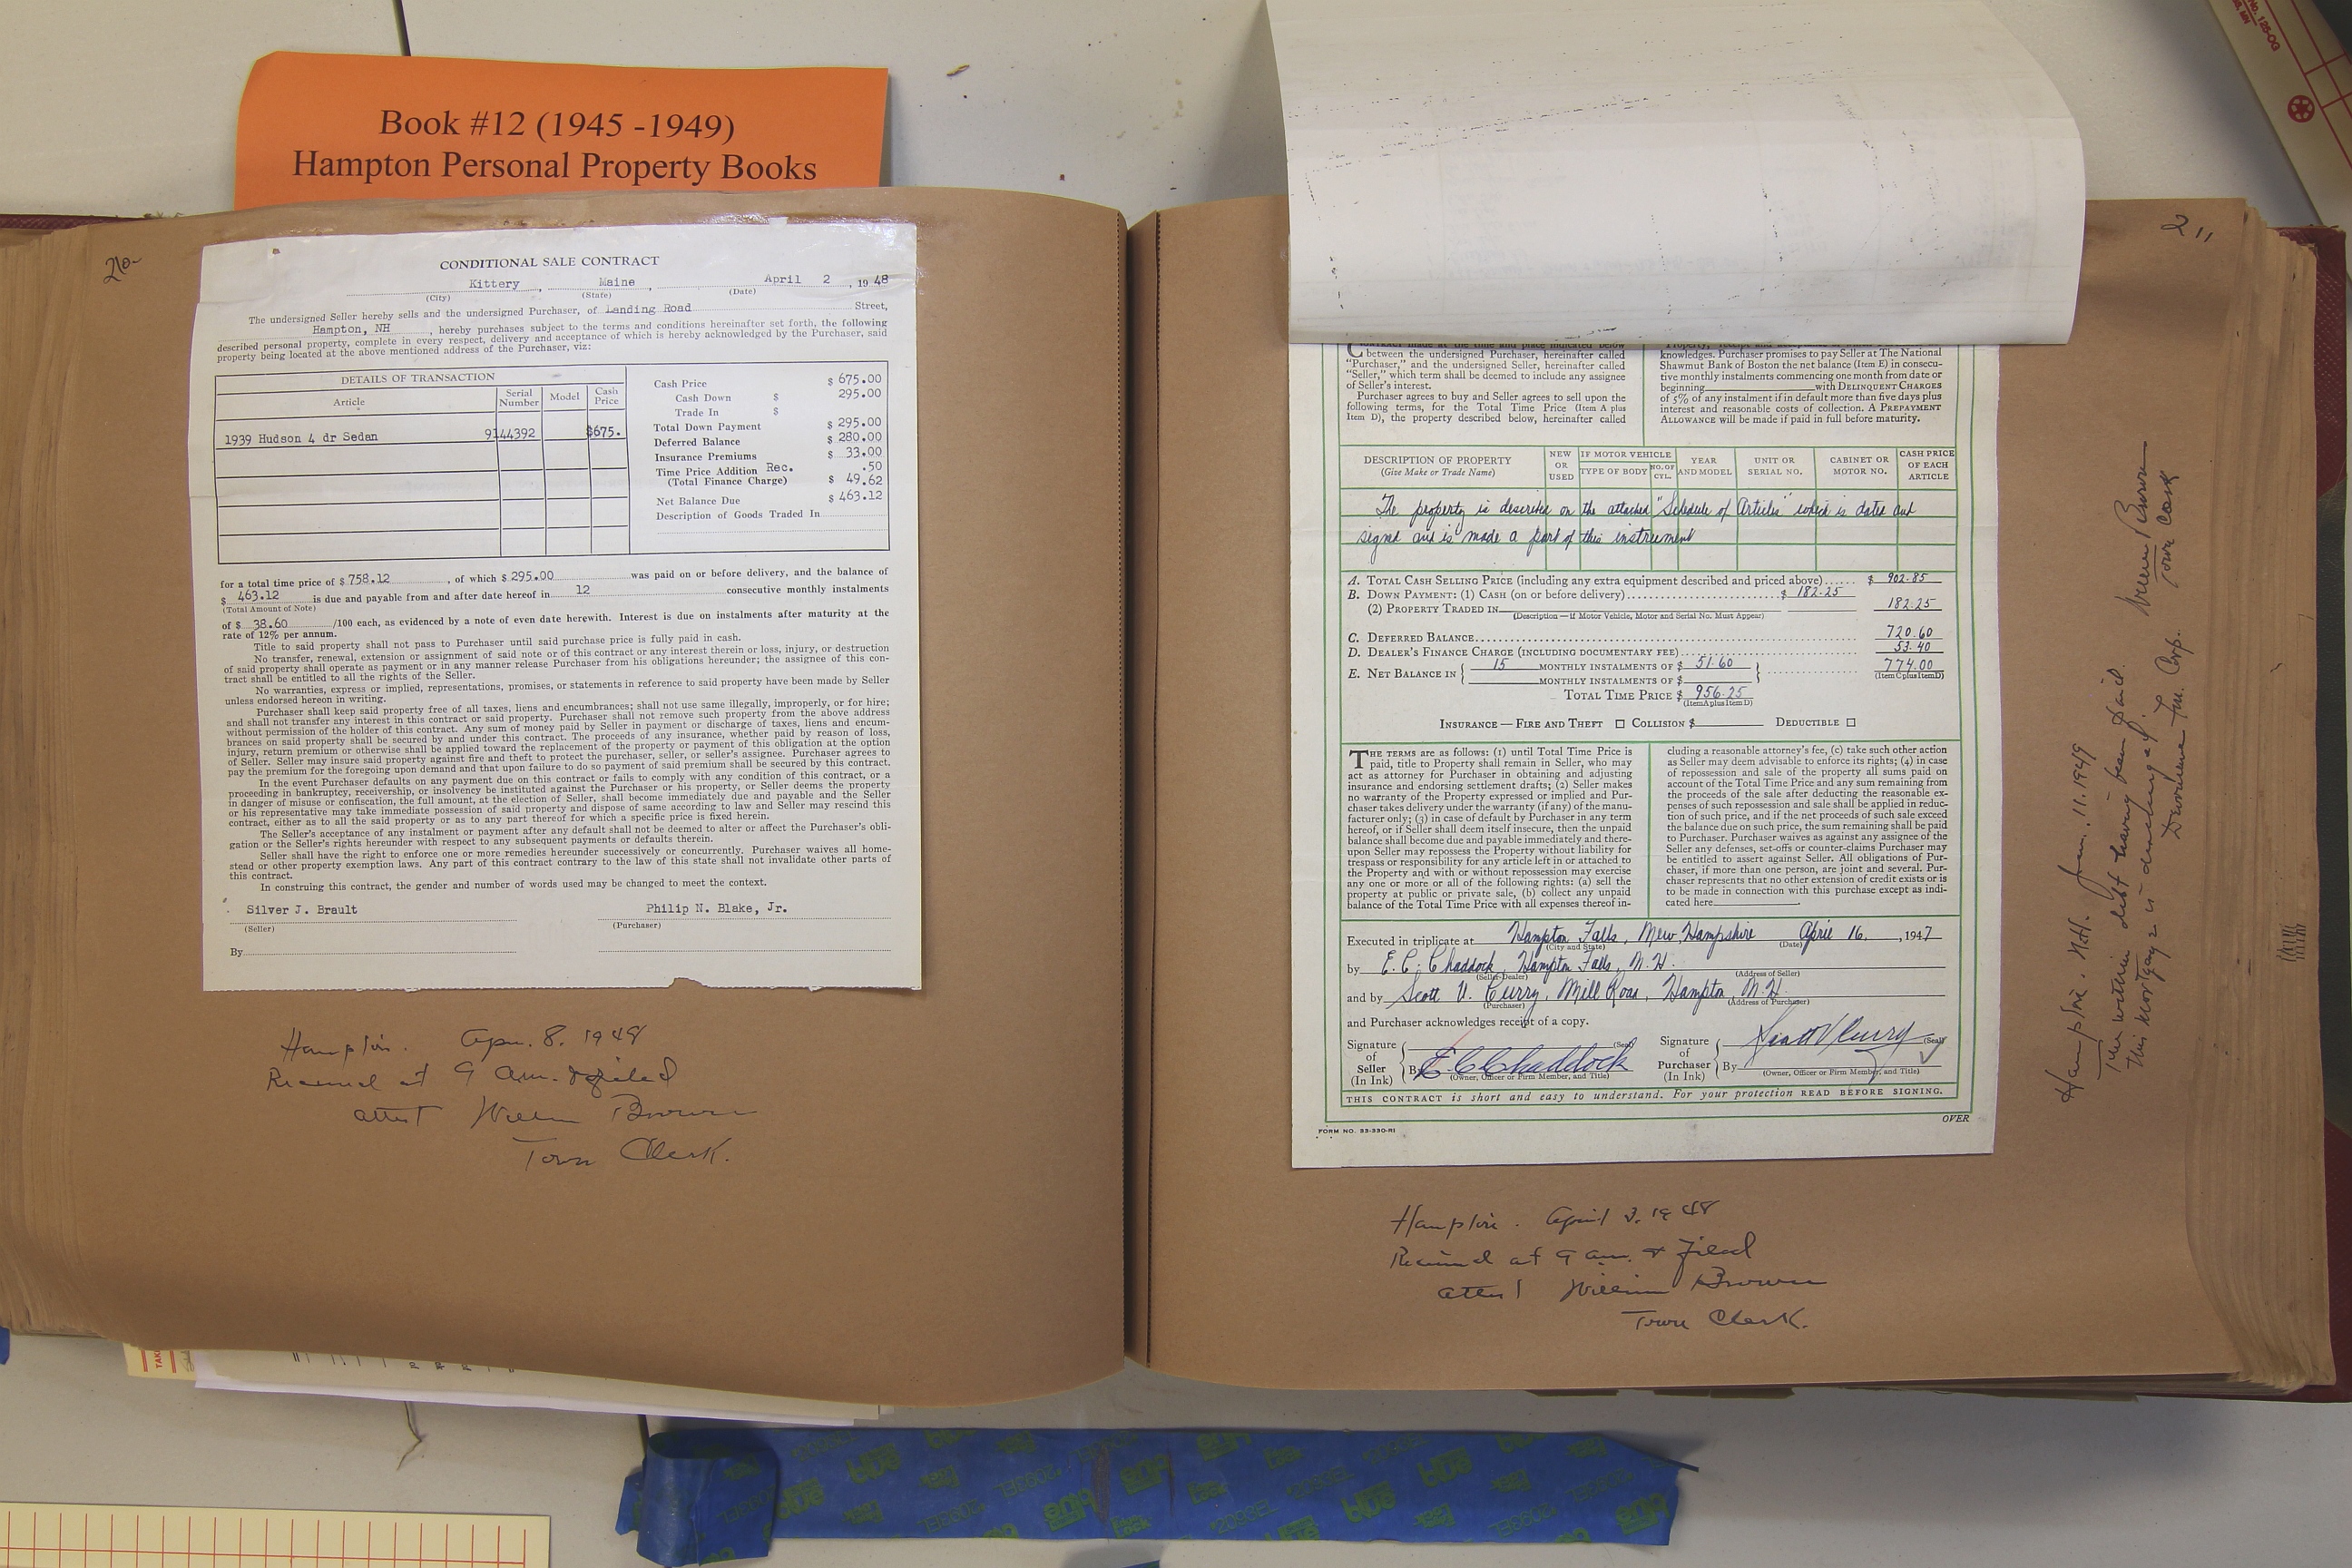 Book #12 (1945 -1949)
Hampton Personal Property Books
210-
CONDITIONAL SALE CONTRACT
Kittery, Maine, April 2, 1948
(City) (State) (Date)
The undersigned Seller hereby sells and the undersigned Purchaser, of Landing Road Street,
Hampton, NH, hereby purchases subject to the terms and conditions hereinafter set forth, the following
described personal property, complete in every respect, delivery and acceptance of which is hereby acknowledged by the Purchaser, said
property being located at the above mentioned address of the Purchaser, viz:
DETAILS OF TRANSACTION
Article Serial Number Model Cash Price
1939 Hudson 4 dr Sedan 9144392 $675.
Cash Price $ 675.00
Cash Down $ 295.00
Trade In $
Total Down Payment $ 295.00
Deferred Balance $ 280.00
Insurance Premiums $ 33.00
Time Price Addition Rec. .50
(Total Finance Charge) $ 49.62
Net Balance Due $ 463.12
Description of Goods Traded In
for a total time price of $ 758.12, of which $ 295.00 was paid on or before delivery, and the balance of
$ 463.12 is due and payable from and after date hereof in 12 consecutive monthly instalments
(Total Amount of Note)
of $ 38.60 /100 each, as evidenced by a note of even date herewith. Interest is due on instalments after maturity at the
rate of 12% per annum.
Title to said property shall not pass to Purchaser until said purchase price is fully paid in cash.
No transfer, renewal, extension or assignment of said note or of this contract or any interest therein or loss, injury, or destruction
of said property shall operate as payment or in any manner release Purchaser from his obligations hereunder; the assignee of this con-
tract shall be entitled to all the rights of the Seller.
No warranties, express or implied, representations, promises, or statements in reference to said property have been made by Seller
unless endorsed hereon in writing.
Purchaser shall keep said property free of all taxes, liens and encumbrances; shall not use same illegally, improperly, or for hire;
and shall not transfer any interest in this contract or said property. Purchaser shall not remove such property from the above address
without permission of the holder of this contract. Any sum of money paid by Seller in payment or discharge of taxes, liens and encum-
brances on said property shall be secured by and under this contract. The proceeds of any insurance, whether paid by reason of loss,
injury, return premium or otherwise shall be applied toward the replacement of the property or payment of this obligation at the option
of Seller. Seller may insure said property against fire and theft to protect the purchaser, seller, or seller's assignee. Purchaser agrees to
pay the premium for the foregoing upon demand and that upon failure to do so payment of said premium shall be secured by this contract.
In the event Purchaser defaults on any payment due on this contract or fails to comply with any condition of this contract, or a
proceeding in bankruptcy, receivership, or insolvency be instituted against the Purchaser or his property, or Seller deems the property
in danger of misuse or confiscation, the full amount, at the election of Seller, shall become immediately due and payable and the Seller
or his representative may take immediate possession of said property and dispose of same according to law and Seller may rescind this
contract, either as to all the said property or as to any part thereof for which a specific price is fixed herein.
The Seller's acceptance of any instalment or payment after any default shall not be deemed to alter or affect the Purchaser's obli-
gation or the Seller's rights hereunder with respect to any subsequent payments or defaults therein.
Seller shall have the right to enforce one or more remedies hereunder successively or concurrently. Purchaser waives all home-
stead or other property exemption laws. Any part of this contract contrary to the law of this state shall not invalidate other parts of
this contract.
In construing this contract, the gender and number of words used may be changed to meet the context.
Silver J. Brault Philip N. Blake, Jr.
(Seller) (Purchaser)
By
Hampton. Apr. 8. 1948
Received at 9 a.m. & filed
attest William Brown
Town Clerk.
211
CONTRACT made at the time and price indicated below
between the undersigned Purchaser, hereinafter called
"Purchaser," and the undersigned Seller, hereinafter called
"Seller," which term shall be deemed to include any assignee
of Seller's interest.
Purchaser agrees to buy and Seller agrees to sell upon the
following terms, for the Total Time Price (Item A plus
Item D), the property described below, hereinafter called
knowledges. Purchaser promises to pay Seller at The National
Shawmut Bank of Boston the net balance (Item E) in consecu-
tive monthly instalments commencing one month from date or
beginning with DELINQUENT CHARGES
of 5% of any instalment if in default more than five days plus
interest and reasonable costs of collection. A PREPAYMENT
ALLOWANCE will be made if paid in full before maturity.
DESCRIPTION OF PROPERTY (Give Make or Trade Name) NEW OR USED IF MOTOR VEHICLE TYPE OF BODY NO. OF CYL. YEAR AND MODEL UNIT OR SERIAL NO. CABINET OR MOTOR NO. CASH PRICE OF EACH ARTICLE
The property is described on the attached "Schedule of Articles" which is dated and
signed and is made a part of this instrument
A. TOTAL CASH SELLING PRICE (including any extra equipment described and priced above) $ 902.85
B. DOWN PAYMENT: (1) CASH (on or before delivery) $ 182.25
(2) PROPERTY TRADED IN 182.25
(Description—if Motor Vehicle, Motor and Serial No. Must Appear)
C. DEFERRED BALANCE 720.60
D. DEALER'S FINANCE CHARGE (INCLUDING DOCUMENTARY FEE) 53.40
E. NET BALANCE IN { 15 MONTHLY INSTALMENTS OF $ 51.60 } 774.00
MONTHLY INSTALMENTS OF $ (Item C plus Item D)
TOTAL TIME PRICE $ 956.25
(Item A plus Item D)
INSURANCE — FIRE AND THEFT ☐ COLLISION $ DEDUCTIBLE ☐
THE TERMS are as follows: (1) until Total Time Price is
paid, title to Property shall remain in Seller, who may
act as attorney for Purchaser in obtaining and adjusting
insurance and endorsing settlement drafts; (2) Seller makes
no warranty of the Property expressed or implied and Pur-
chaser takes delivery under the warranty (if any) of the manu-
facturer only; (3) in case of default by Purchaser in any term
hereof, or if Seller shall deem itself insecure, then the unpaid
balance shall become due and payable immediately and there-
upon Seller may repossess the Property without liability for
trespass or responsibility for any article left in or attached to
the Property and with or without repossession may exercise
any one or more or all of the following rights: (a) sell the
property at public or private sale, (b) collect any unpaid
balance of the Total Time Price with all expenses thereof in-
cluding a reasonable attorney's fee, (c) take such other action
as Seller may deem advisable to enforce its rights; (4) in case
of repossession and sale of the property all sums paid on
account of the Total Time Price and any sum remaining from
the proceeds of the sale after deducting the reasonable ex-
penses of such repossession and sale shall be applied in reduc-
tion of such price, and if the net proceeds of such sale exceed
the balance due on such price, the sum remaining shall be paid
to Purchaser. Purchaser waives as against any assignee of the
Seller any defenses, set-offs or counter-claims Purchaser may
be entitled to assert against Seller. All obligations of Pur-
chaser, if more than one person, are joint and several. Pur-
chaser represents that no other extension of credit exists or is
to be made in connection with this purchase except as indi-
cated here
Executed in triplicate at Hampton Falls, New Hampshire April 16, 1947
(City and State) (Date)
by E. C. Chaddock, Hampton Falls, N.H.
(Seller-Dealer) (Address of Seller)
and by Scott V. Curry, Mill Road, Hampton N.H.
(Purchaser) (Address of Purchaser)
and Purchaser acknowledges receipt of a copy.
Signature of Seller (In Ink) (Seal) By E C Chaddock (Owner, Officer or Firm Member, and Title)
Signature of Purchaser (In Ink) Scott V Curry (Seal) By (Owner, Officer or Firm Member, and Title)
THIS CONTRACT is short and easy to understand. For your protection READ BEFORE SIGNING.
OVER
FORM NO. 33-330-R1
Hampton. April 3. 1948
Received at 9 am. & filed
attest William Brown
Town Clerk.
Hampton. N.H. Jan. 11. 1949
The within debt having been paid
this mortgage is discharged. William Brown
Fin. Corp. Town Clerk